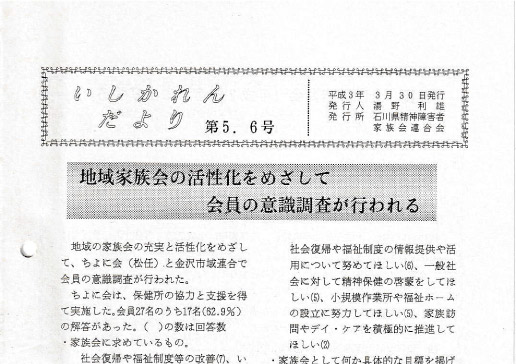 いしかれん
だより 第5.6号
平成3年 3月30日発行
発行人 湯野利雄
発行所 石川県精神障害者
家族会連合会
地域家族会の活性化をめざして
会員の意識調査が行われる
地域の家族会の充実と活性化をめざし
て、ちよに会(松任)と金沢市域連合で
会員の意識調査が行われた。
ちよに会は、保健所の協力と支援を得
て実施した。会員27名のうち17名(62.9%)
の解答があった。( )の数は回答数
・家族会に求めているもの。
社会復帰や福祉制度等の改善(7)、い
社会復帰や福祉制度の情報提供や活
用について努めてほしい(6)、一般社
会に対して精神保健の啓蒙をしてほ
しい(6)、小規模作業所や福祉ホーム
の設立に努力してほしい(5)、家族訪
問やデイ・ケアを積極的に推進して
ほしい(2)
・家族会として何か具体的な目標を掲げ